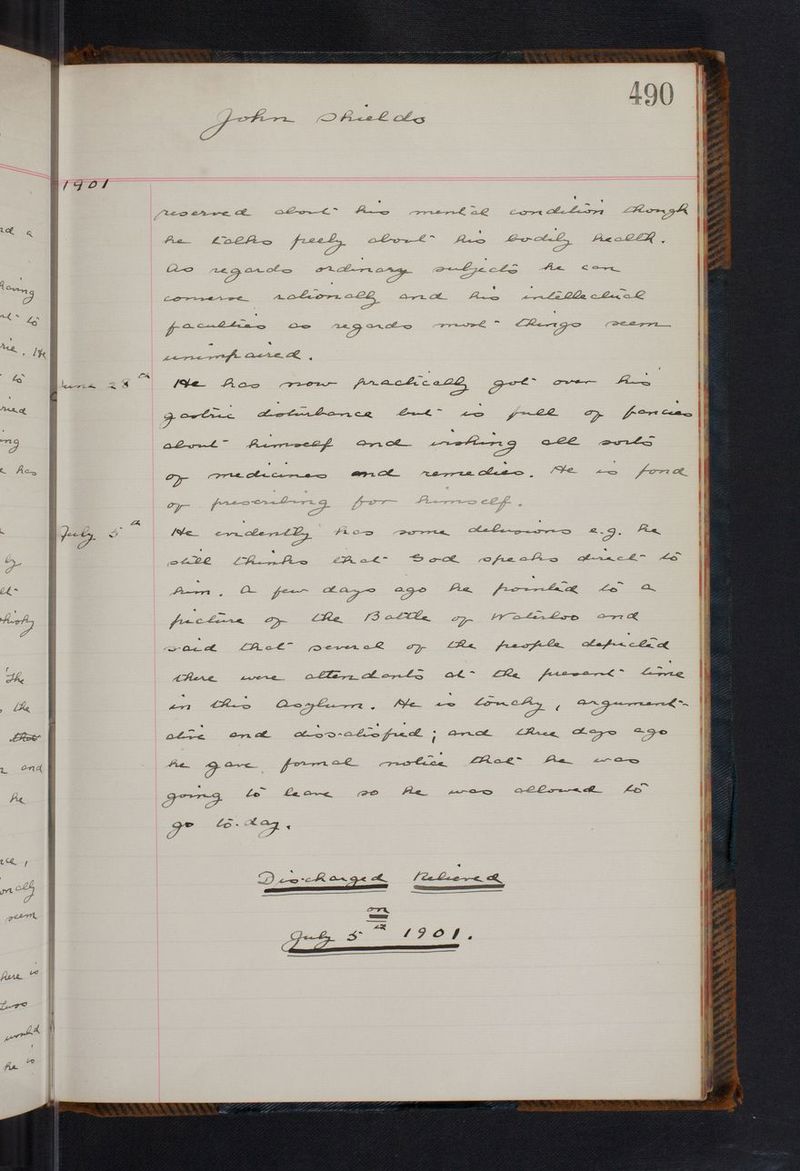 490
John Shields
1901
reserved about his mental condition though
he talks freely about his bodily health.
As regards ordinary subjects he can
converse rationally and his intellectual
faculties as regards most things seem
unimpaired.
June 28th He has now practically got over his
gastric disturbance but is full of fancies
about himself and wishing all sorts
of medicines and remedies. He is fond
of prescribing for himself.
July 5th He evidently has some delusions e.g. he
still thinks that God speaks direct to
him. A few days ago he pointed to a
picture of the Battle of Waterloo and
said that several of the people depicted
there were attendants at the present time
in this Asylum. He is touchy, argument-
ative and dissatisfied; and three days ago
he gave formal notice that he was
going to leave so he was allowed to
go to-day.
Discharged Relieved
on
July 5th 1901.